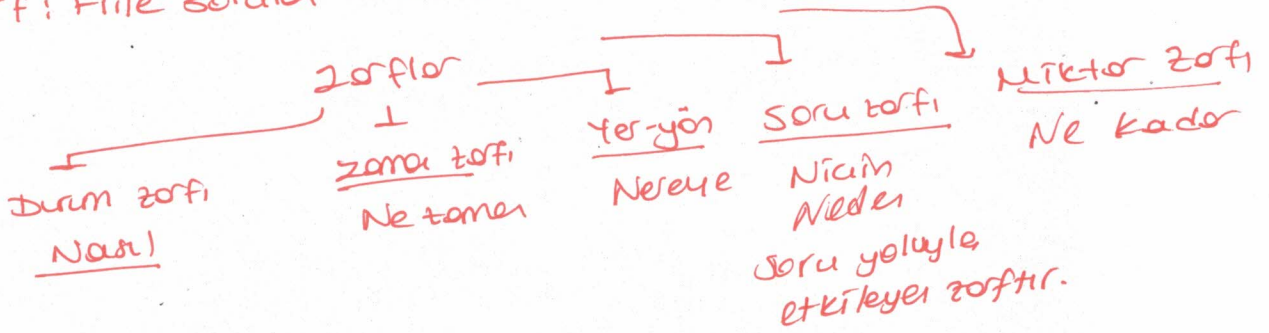 Zarflar
Durum zarfı
Nasıl
zaman zarfı
Ne zaman
Yer-yön
Nereye
Soru zarfı
Niçin
Neden
soru yoluyla
etkileyen zarftır.
Miktar zarfı
Ne kadar